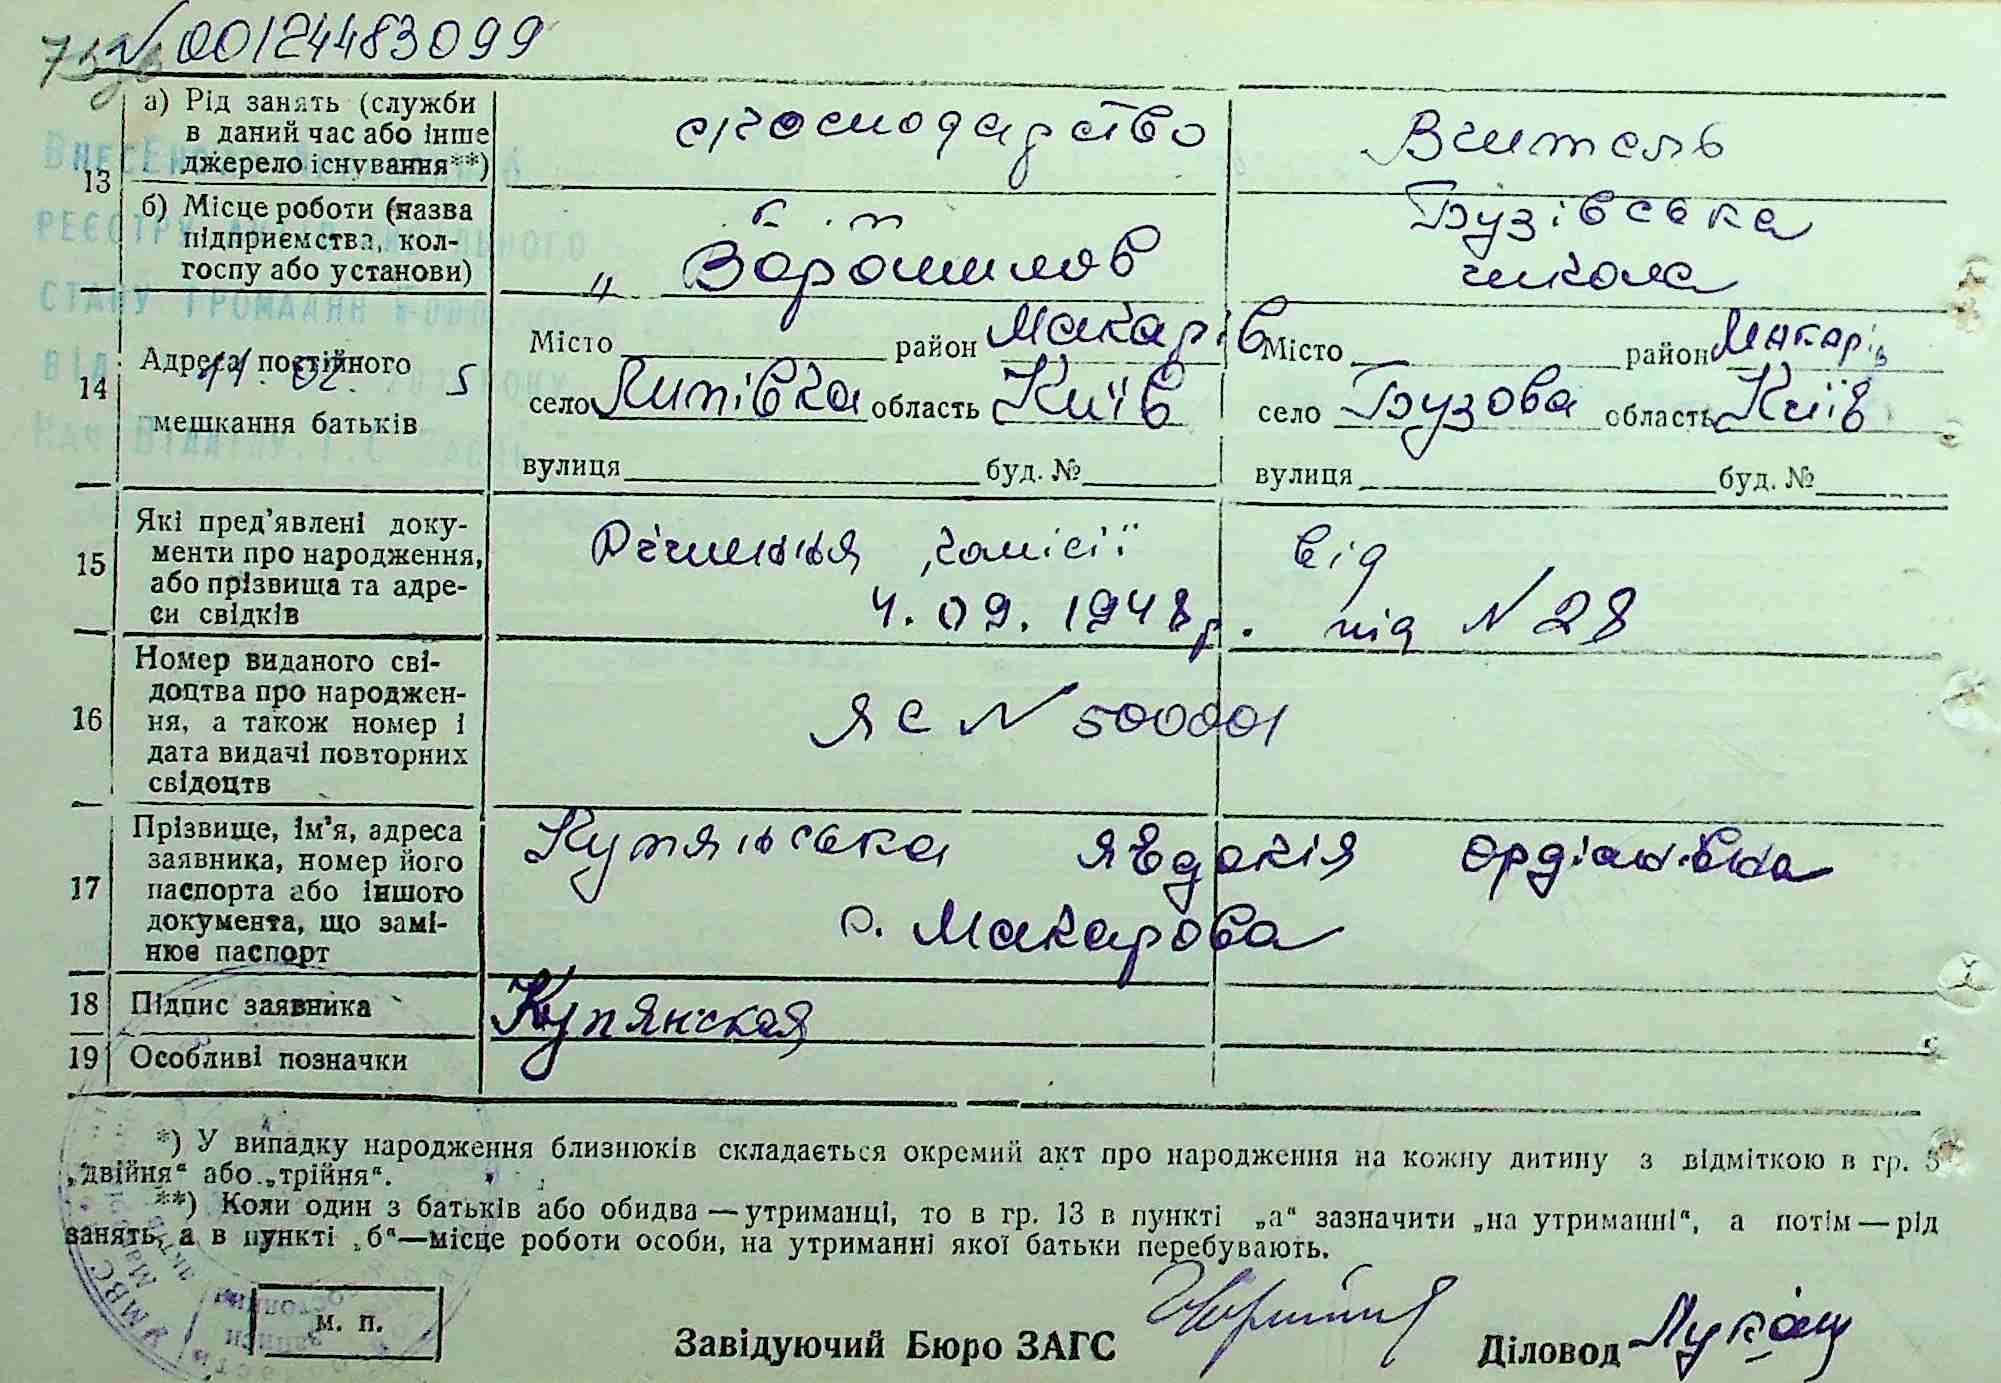 № 00124483099
13
а) Рід занять (служби в даний час або інше джерело існування**)
с/господарство
Вчитель
б) Місце роботи (назва підприємства, колгоспу або установи)
к. і. п
„ Ворошилов
Бузівська
школа
14
Адреса постійного
мешкання батьків
Місто район Макарів
село Липівка область Київ
вулиця буд. №
Місто район Макарів
село Бузова область Київ
вулиця буд. №
15
Які пред’явлені доку-
менти про народження,
або прізвища та адре-
си свідків
Рішення комісії від
4. 09. 1948 р. під N 28
16
Номер виданого сві-
доцтва про народжен-
ня, а також номер і
дата видачі повторних
свідоцтв
ЯС N 500001
17
Прізвище, ім’я, адреса
заявника, номер його
паспорта або іншого
документа, що замі-
нює паспорт
Купянська Явдокія
с. Макарова
18
Підпис заявника
Купянская
19
Особливі позначки
*) У випадку народження близнюків складається окремий акт про народження на кожну дитину з відміткою в гр. 5
„двійня“ або „трійня“.
**) Коли один з батьків або обидва — утриманці, то в гр. 13 в пункті „а“ зазначити „на утриманні“, а потім — рід
занять, а в пункті „б“—місце роботи особи, на утриманні якої батьки перебувають.
м. п.
Завідуючий Бюро ЗАГС
Діловод